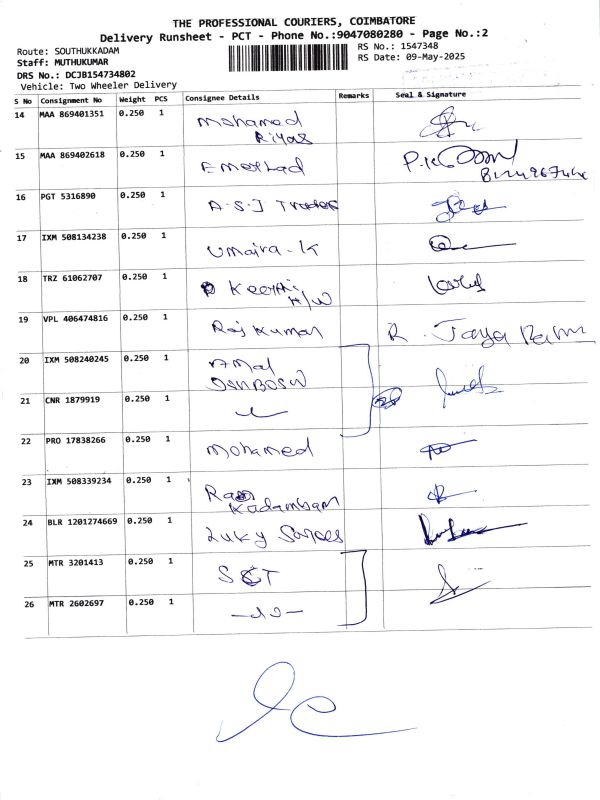 THE PROFESSIONAL COURIERS, COIMBATORE
Delivery Runsheet - PCT - Phone No.:9047080280 - Page No.:2
Route: SOUTHUKKADAM
RS No.: 1547348
Staff: MUTHUKUMAR
RS Date: 09-May-2025
DRS No.: DCJB154734802
Vehicle: Two Wheeler Delivery
S No Consignment No Weight PCS Consignee Details Remarks Seal & Signature
14 MAA 869401351 0.250 1 Mohamed
Riyas
15 MAA 869402618 0.250 1
16 PGT 5316890 0.250 1 A.S.J Traders
17 IXM 508134238 0.250 1 Umaira. K
18 TRZ 61062707 0.250 1 Keerthi
H/W
19 VPL 406474816 0.250 1 Raj Kumar R. Jaya
20 IXM 508240245 0.250 1 Amal
21 CNR 1879919 0.250 1
22 PRO 17838266 0.250 1 Mohamed
23 IXM 508339234 0.250 1 Ram
Kadambam
24 BLR 1201274669 0.250 1 Luky
25 MTR 3201413 0.250 1 SCT
26 MTR 2602697 0.250 1 —do—